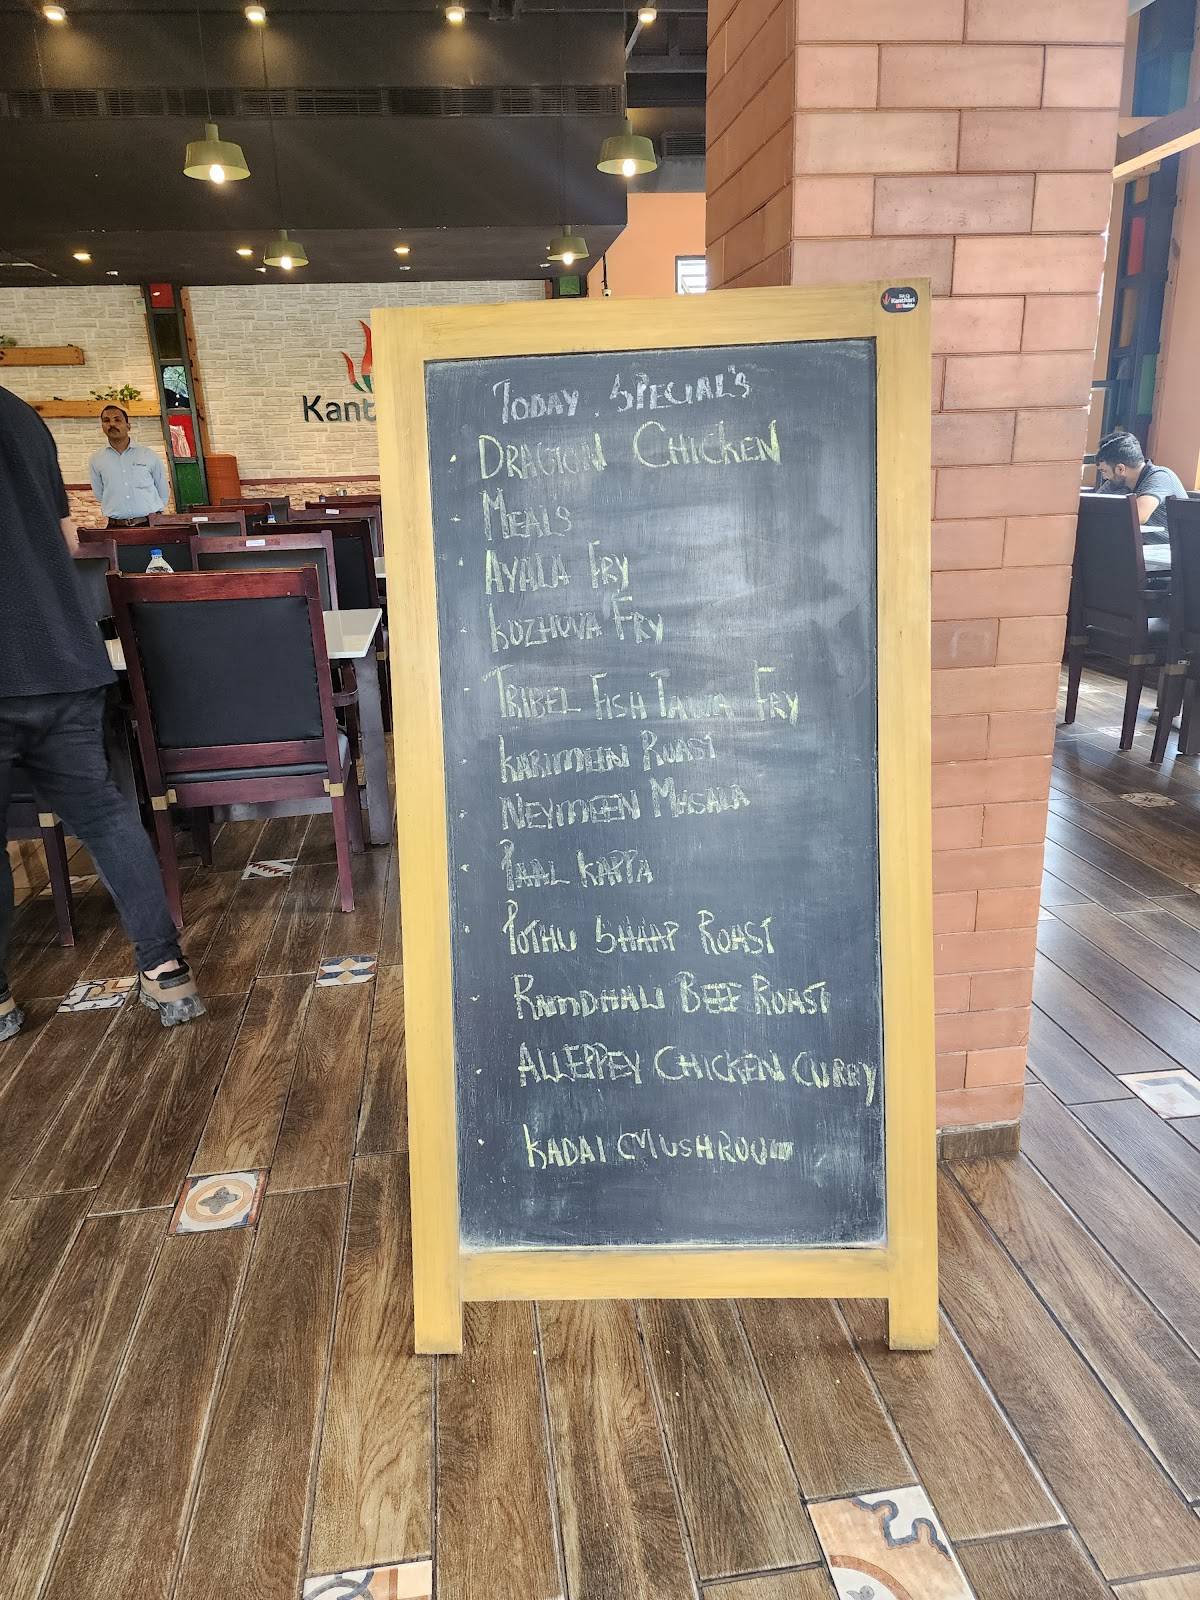 Kant
Kanthari
TODAY SPECIAL'S
DRAGION CHICKEN
MEALS
AYALA FRY
KOZHUVA FRY
TRIBEL FISH TAWA FRY
KARIMEEN ROAST
NEYMEEN MASALA
PAAL KAPPA
POTHU SHAAP ROAST
BEEF ROAST
ALLEPPEY CHICKEN CURRY
KADAI MUSHROOM